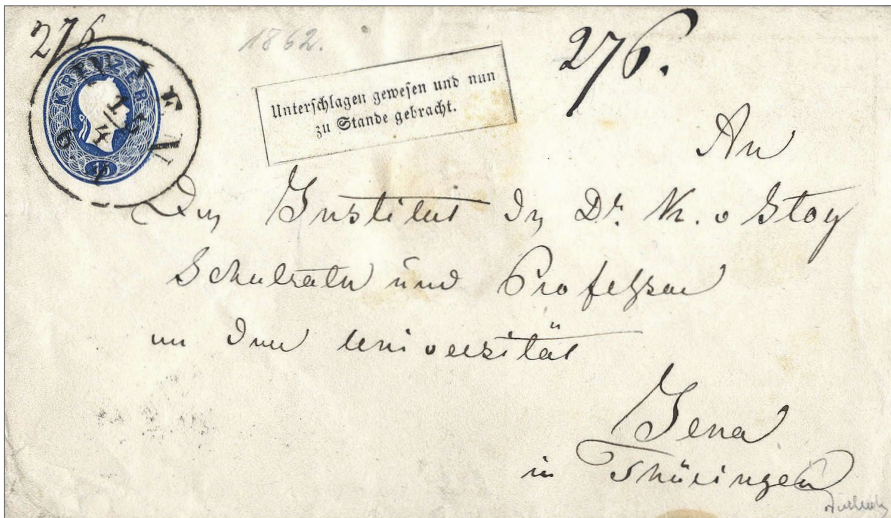 276
1862.
276.
KREUZER
15
WIEN
Unterschlagen gewesen und nun
zu Stande gebracht.
An
Das Institut des Dr. K. v Stoy
Schulrath und Professor
an der Universität
Jena
in Thüringen